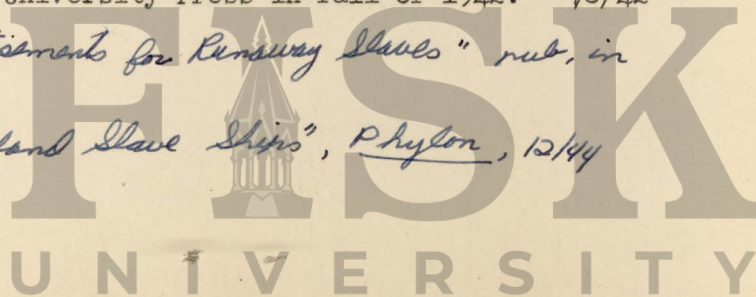 University Press in Fall of 1942.
sements for Runaway Slaves" pub, in
and Slave Ships", Phylon, 12/44
FISK
UNIVERSITY